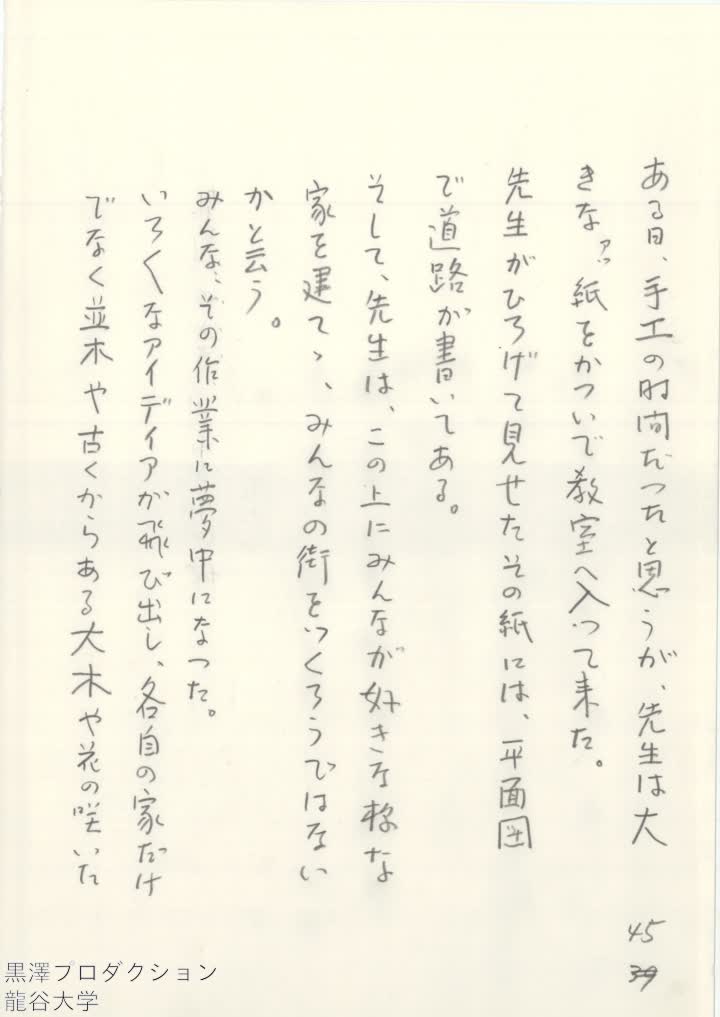 ある日、手工の時間だったと思うが、先生は大
きな厚紙をかついで教室へ入って来た。
先生がひろげて見せたその紙には、平面図
で道路が書いてある。
そして、先生は、この上にみんなが好きな様な
家を建てゝ、みんなの街をつくろうではない
かと云う。
みんな、その作業に夢中になった。
いろ〱なアイディアが飛び出し、各自の家だけ
でなく並木や古くからある大木や花の咲いた
45
39
黒澤プロダクション
龍谷大学